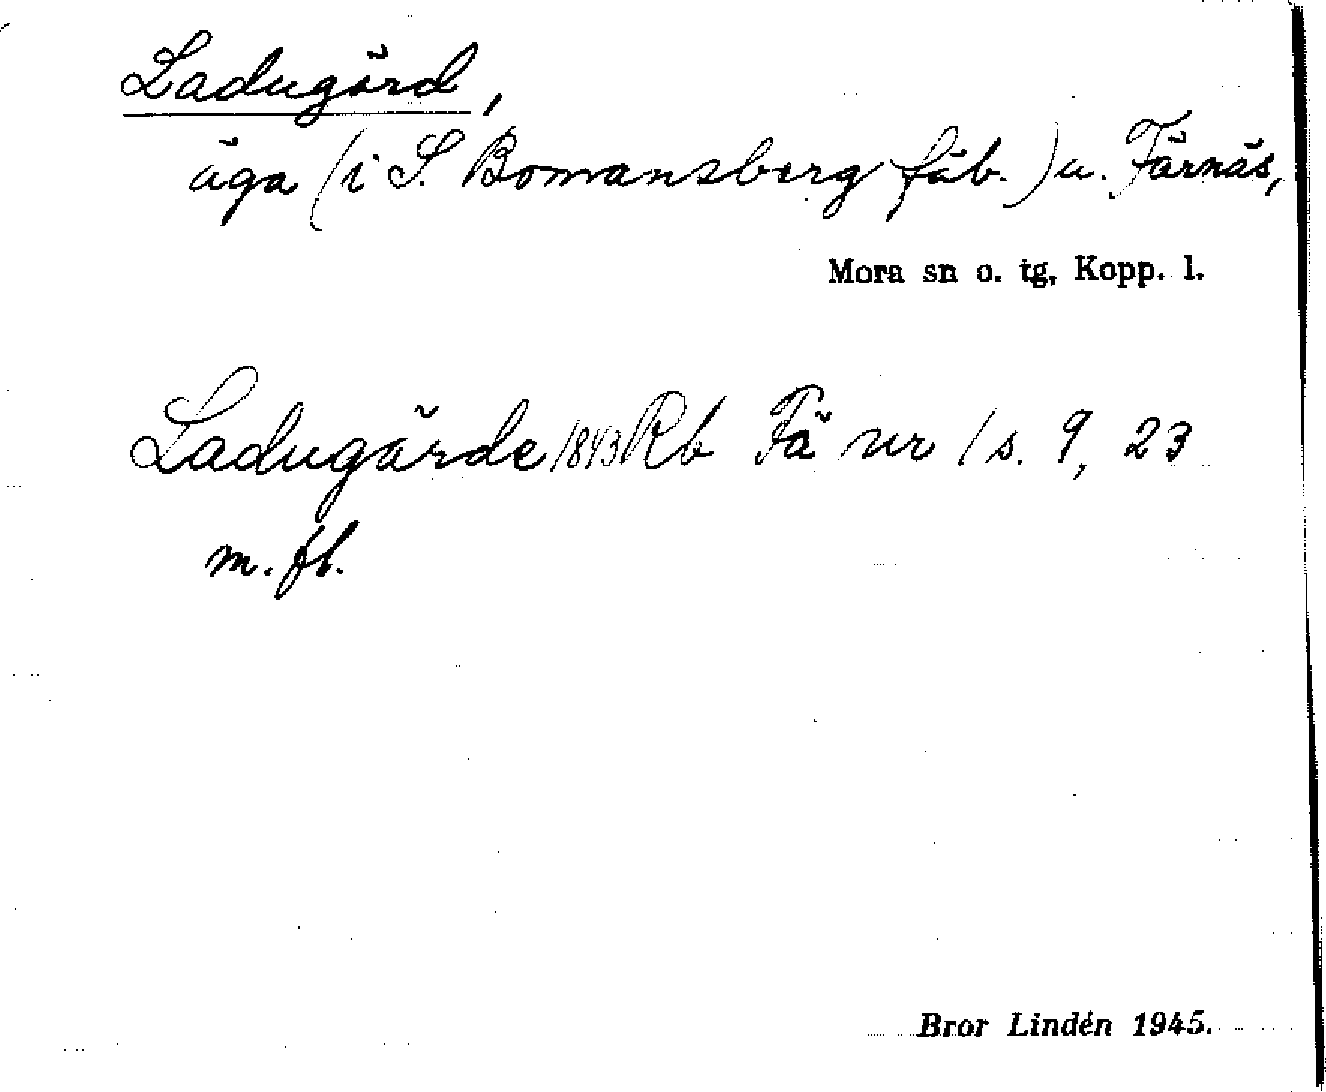 Ladugård,
äga (i S. Bomansberg fäb.) u. Färnäs,
Mora sn o. tg, Kopp. l.
Ladugårde 1843 Rb Fä nr 1 s. 9, 23
m. fl.
Bror Lindén 1945.